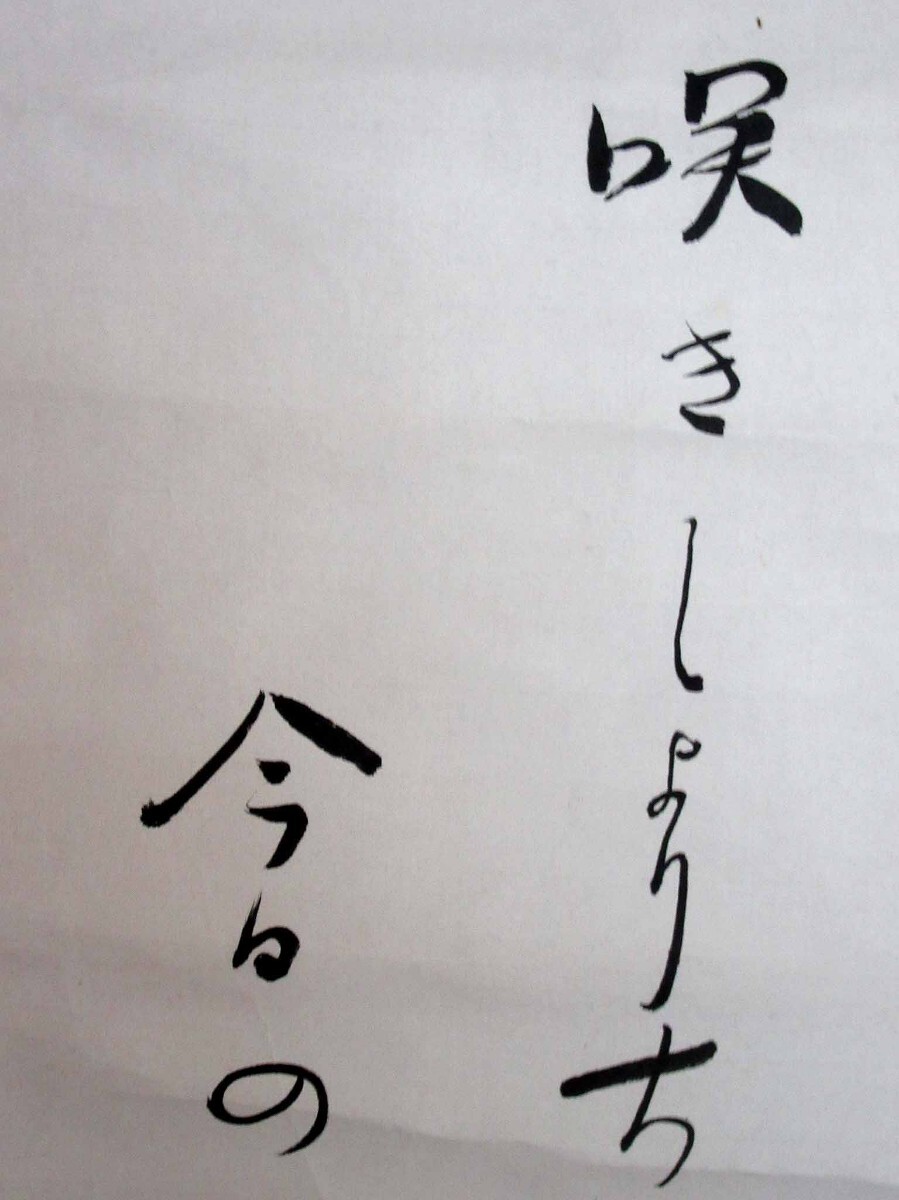 咲きしより古
今日の